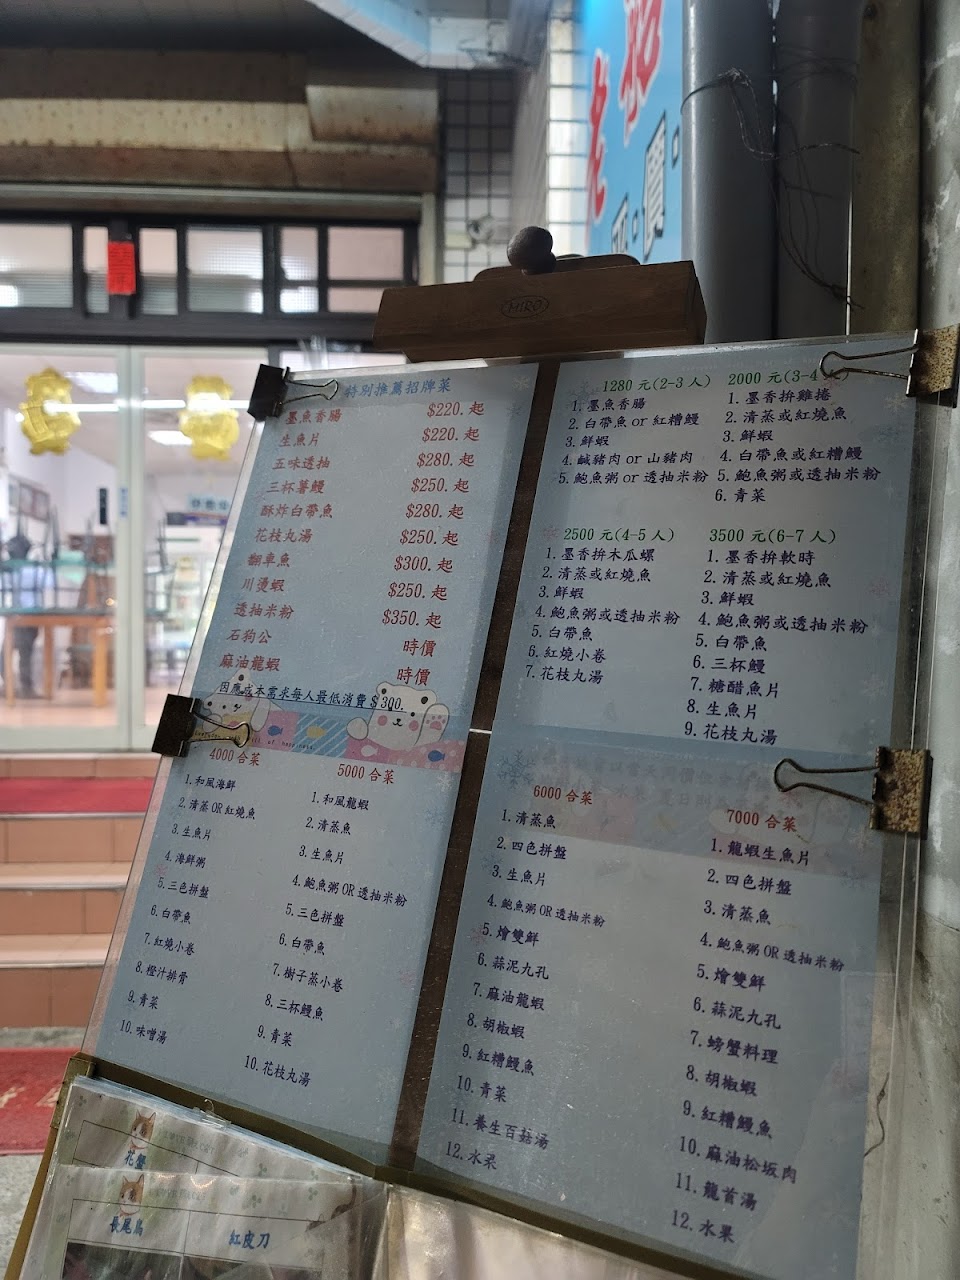 平·價·
MIRO
特別推薦招牌菜
墨魚香腸 $220.起
生魚片 $220.起
五味透抽 $280.起
三杯薯鰻 $250.起
酥炸白帶魚 $280.起
花枝丸湯 $250.起
翻車魚 $300.起
川燙蝦 $250.起
透抽米粉 $350.起
石狗公 時價
麻油龍蝦 時價
因應成本需求每人最低消費$300.
1280 元(2-3 人)
1.墨魚香腸
2.白帶魚 or 紅糟鰻
3.鮮蝦
4.鹹豬肉 or 山豬肉
5.鮑魚粥 or 透抽米粉
2000 元(3-4
1.墨香拚雞捲
2.清蒸或紅燒魚
3.鮮蝦
4.白帶魚或紅糟鰻
5.鮑魚粥或透抽米粉
6.青菜
2500 元(4-5 人)
1.墨香拚木瓜螺
2.清蒸或紅燒魚
3.鮮蝦
4.鮑魚粥或透抽米粉
5.白帶魚
6.紅燒小卷
7.花枝丸湯
3500 元(6-7 人)
1.墨香拚軟時
2.清蒸或紅燒魚
3.鮮蝦
4.鮑魚粥或透抽米粉
5.白帶魚
6.三杯鰻
7.糖醋魚片
8.生魚片
9.花枝丸湯
4000 合菜
1.和風海鮮
2.清蒸 OR 紅燒魚
3.生魚片
4.海鮮粥
5.三色拼盤
6.白帶魚
7.紅燒小卷
8.橙汁排骨
9.青菜
10.味噌湯
5000 合菜
1.和風龍蝦
2.清蒸魚
3.生魚片
4.鮑魚粥 OR 透抽米粉
5.三色拼盤
6.白帶魚
7.樹子蒸小卷
8.三杯鰻魚
9.青菜
10.花枝丸湯
6000 合菜
1.清蒸魚
2.四色拼盤
3.生魚片
4.鮑魚粥 OR 透抽米粉
5.燴雙鮮
6.蒜泥九孔
7.麻油龍蝦
8.胡椒蝦
9.紅糟鰻魚
10.青菜
11.養生百菇湯
12.水果
7000 合菜
1.龍蝦生魚片
2.四色拼盤
3.清蒸魚
4.鮑魚粥 OR 透抽米粉
5.燴雙鮮
6.蒜泥九孔
7.螃蟹料理
8.胡椒蝦
9.紅糟鰻魚
10.麻油松坂肉
11.龍首湯
12.水果
花蟹
長尾鳥 紅皮刀